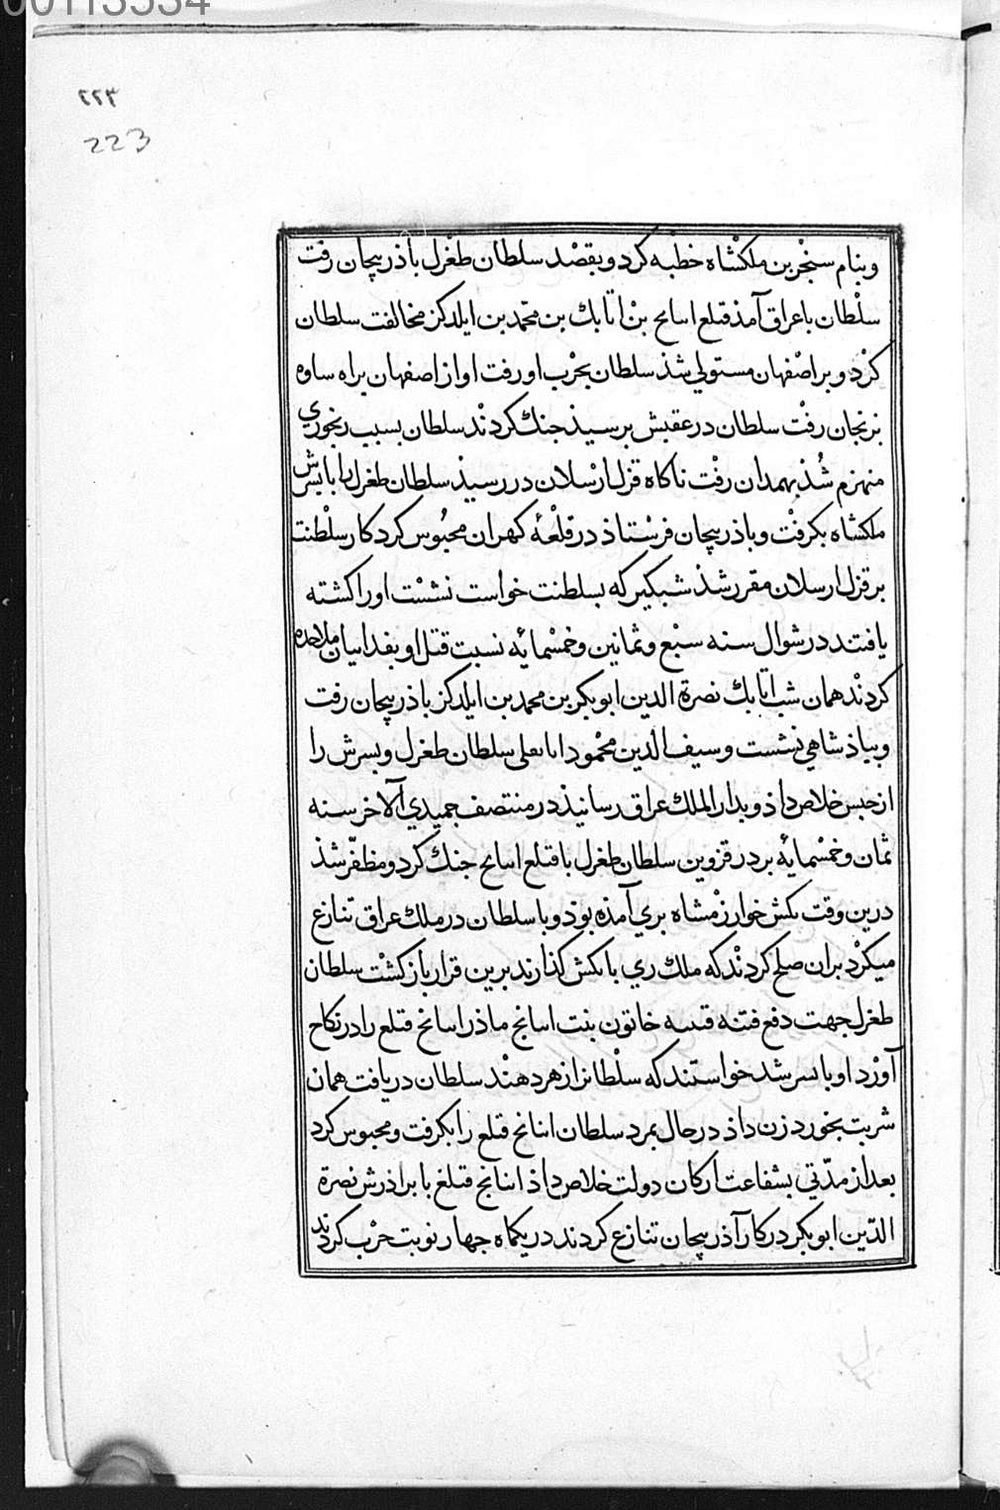 00113534
٢٢٣
223
وبنام سنجر بن ملکشاه خطبه کرد و بقصد سلطان طغرل باذربیجان رفت
سلطان باعراق آمذ قتلع اسایح بن اتابك بن محمد بن ایلدکز مخالفت سلطان
کرد و بر اصفهان مستولی شذ سلطان بحرب او رفت او از اصفهان براه ساوه
بزنجان رفت سلطان در عقبش برسیذ جنك کردند سلطان بسبب رنجوری
منهزم شذ بهمدان رفت ناکاه قزل ارسلان در رسیذ سلطان طغرل را با پسرش
ملکشاه بکرفت و باذربیجان فرستاذ در قلعهٔ کهران محبوس کرد کار سلطنت
بر قزل ارسلان مقرر شذ شبکیر که بسلطنت خواست نشست او را کشته
یافتند در شوال سنه سبع و ثمانین و خمسمائه نسبت قتل او بفداییان ملاحده
کردند همان شب اتابك نصرة الدین ابوبکر بن محمد بن ایلدکز باذربیجان رفت
و بپاذشاهی نشست و سیف الدین محمود اناىعلی سلطان طغرل و پسرش را
از حبس خلاص داذ و بدار الملك عراق رسانیذ در منتصف جمیدی الآخر سنه
ثمان و خمسمایه بر در قزوین سلطان طغرل با قتلع اسایح جنك کرد و مظفّر شذ
درین وقت تکش خوارزمشاه بری آمذه بوذ و با سلطان در ملك عراق تنازع
میکرد بران صلح کردند که ملك ری با تکش کذارند برین قرار باز کشت سلطان
طغرل جهت دفع فتنه قتیبه خاتون بنت اسانج ماذر اسانج قتلع را در نکاح
آورد او با پسر شد خواستند که سلطانرا زهر دهند سلطان دریافت همان
شربت بخورد زن داذ در حال بمرد سلطان اسانج قتلع را بکرفت و محبوس کرد
بعد از مدّتی بشفاعت ارکان دولت خلاص داذ اسانج قتلغ با براذرش نصرة
الدّین ابوبکر در کار آذربیجان تنازع کردند در یکماه جهار نوبت حرب کردند